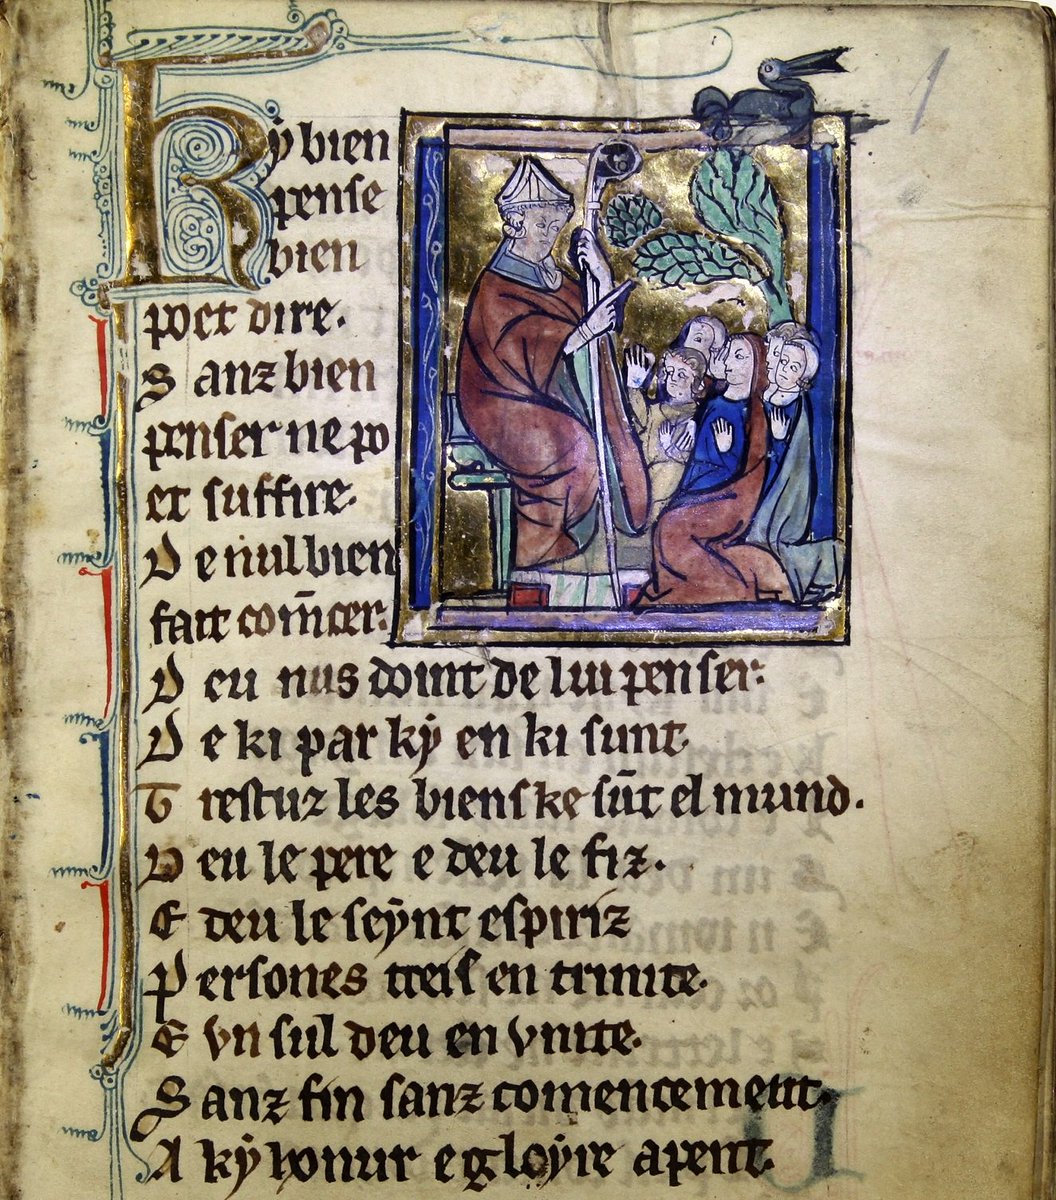 1
Ky bien
pense
bien
poet dire.
S anz bien
penser ne po
et suffire.
D e nul bien
fait com̄cer.
D eu nus doint de lui penser.
D e ki par ky en ki sunt
T restuz les biens ke sūt el mund.
D eu le pere e deu le fiz.
E deu le seẏnt espiriz
P ersones treis en trinite.
E vn sul deu en vnite.
S anz fin sanz comencement.
A kẏ honur e gloẏre apent.